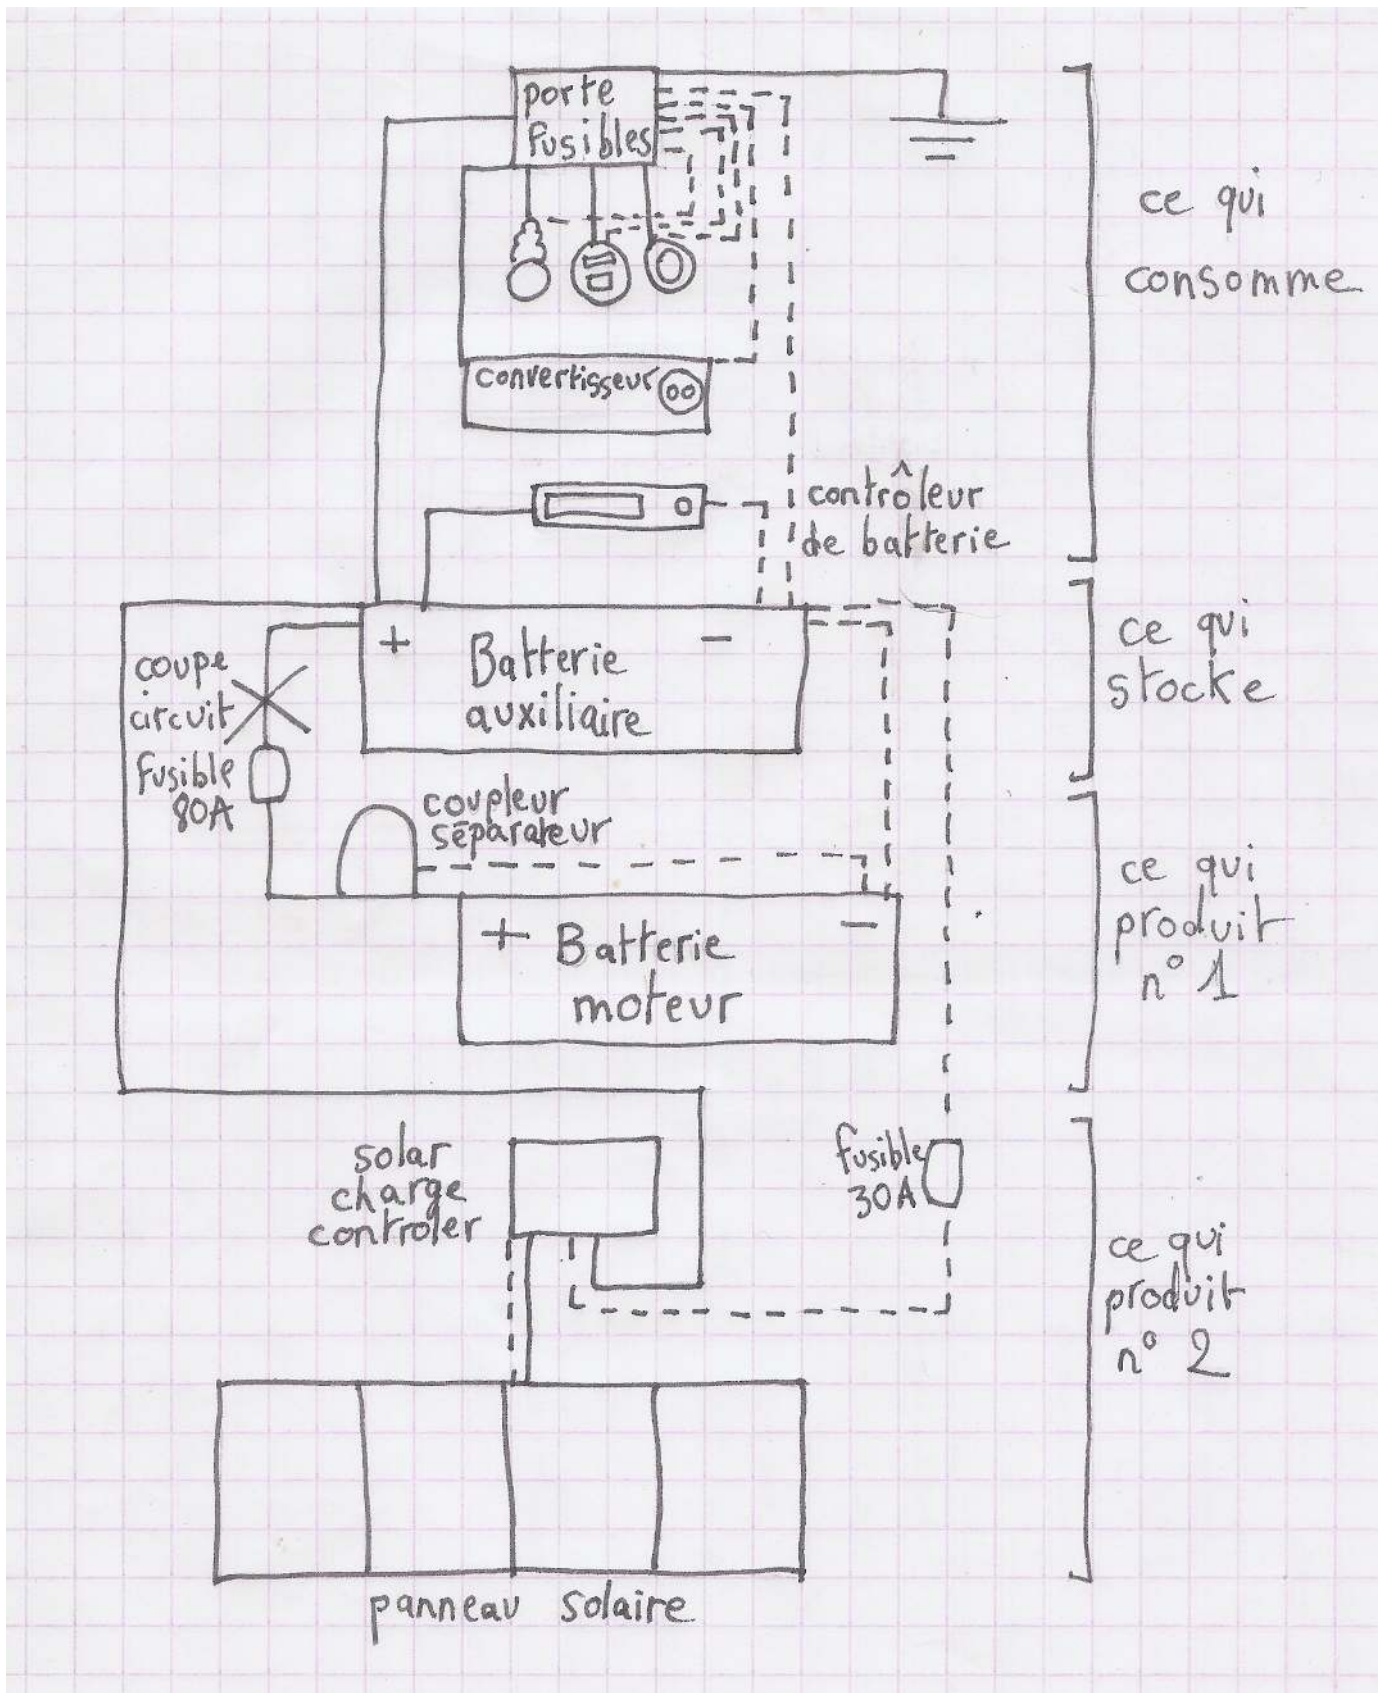 porte
fusibles
ce qui
consomme
convertisseur
contrôleur
de batterie
+ Batterie -
auxiliaire
ce qui
stocke
coupe
circuit
fusible
80A
coupleur
séparateur
+ Batterie -
moteur
ce qui
produit
n° 1
solar
charge
controler
fusible
30A
ce qui
produit
n° 2
panneau solaire